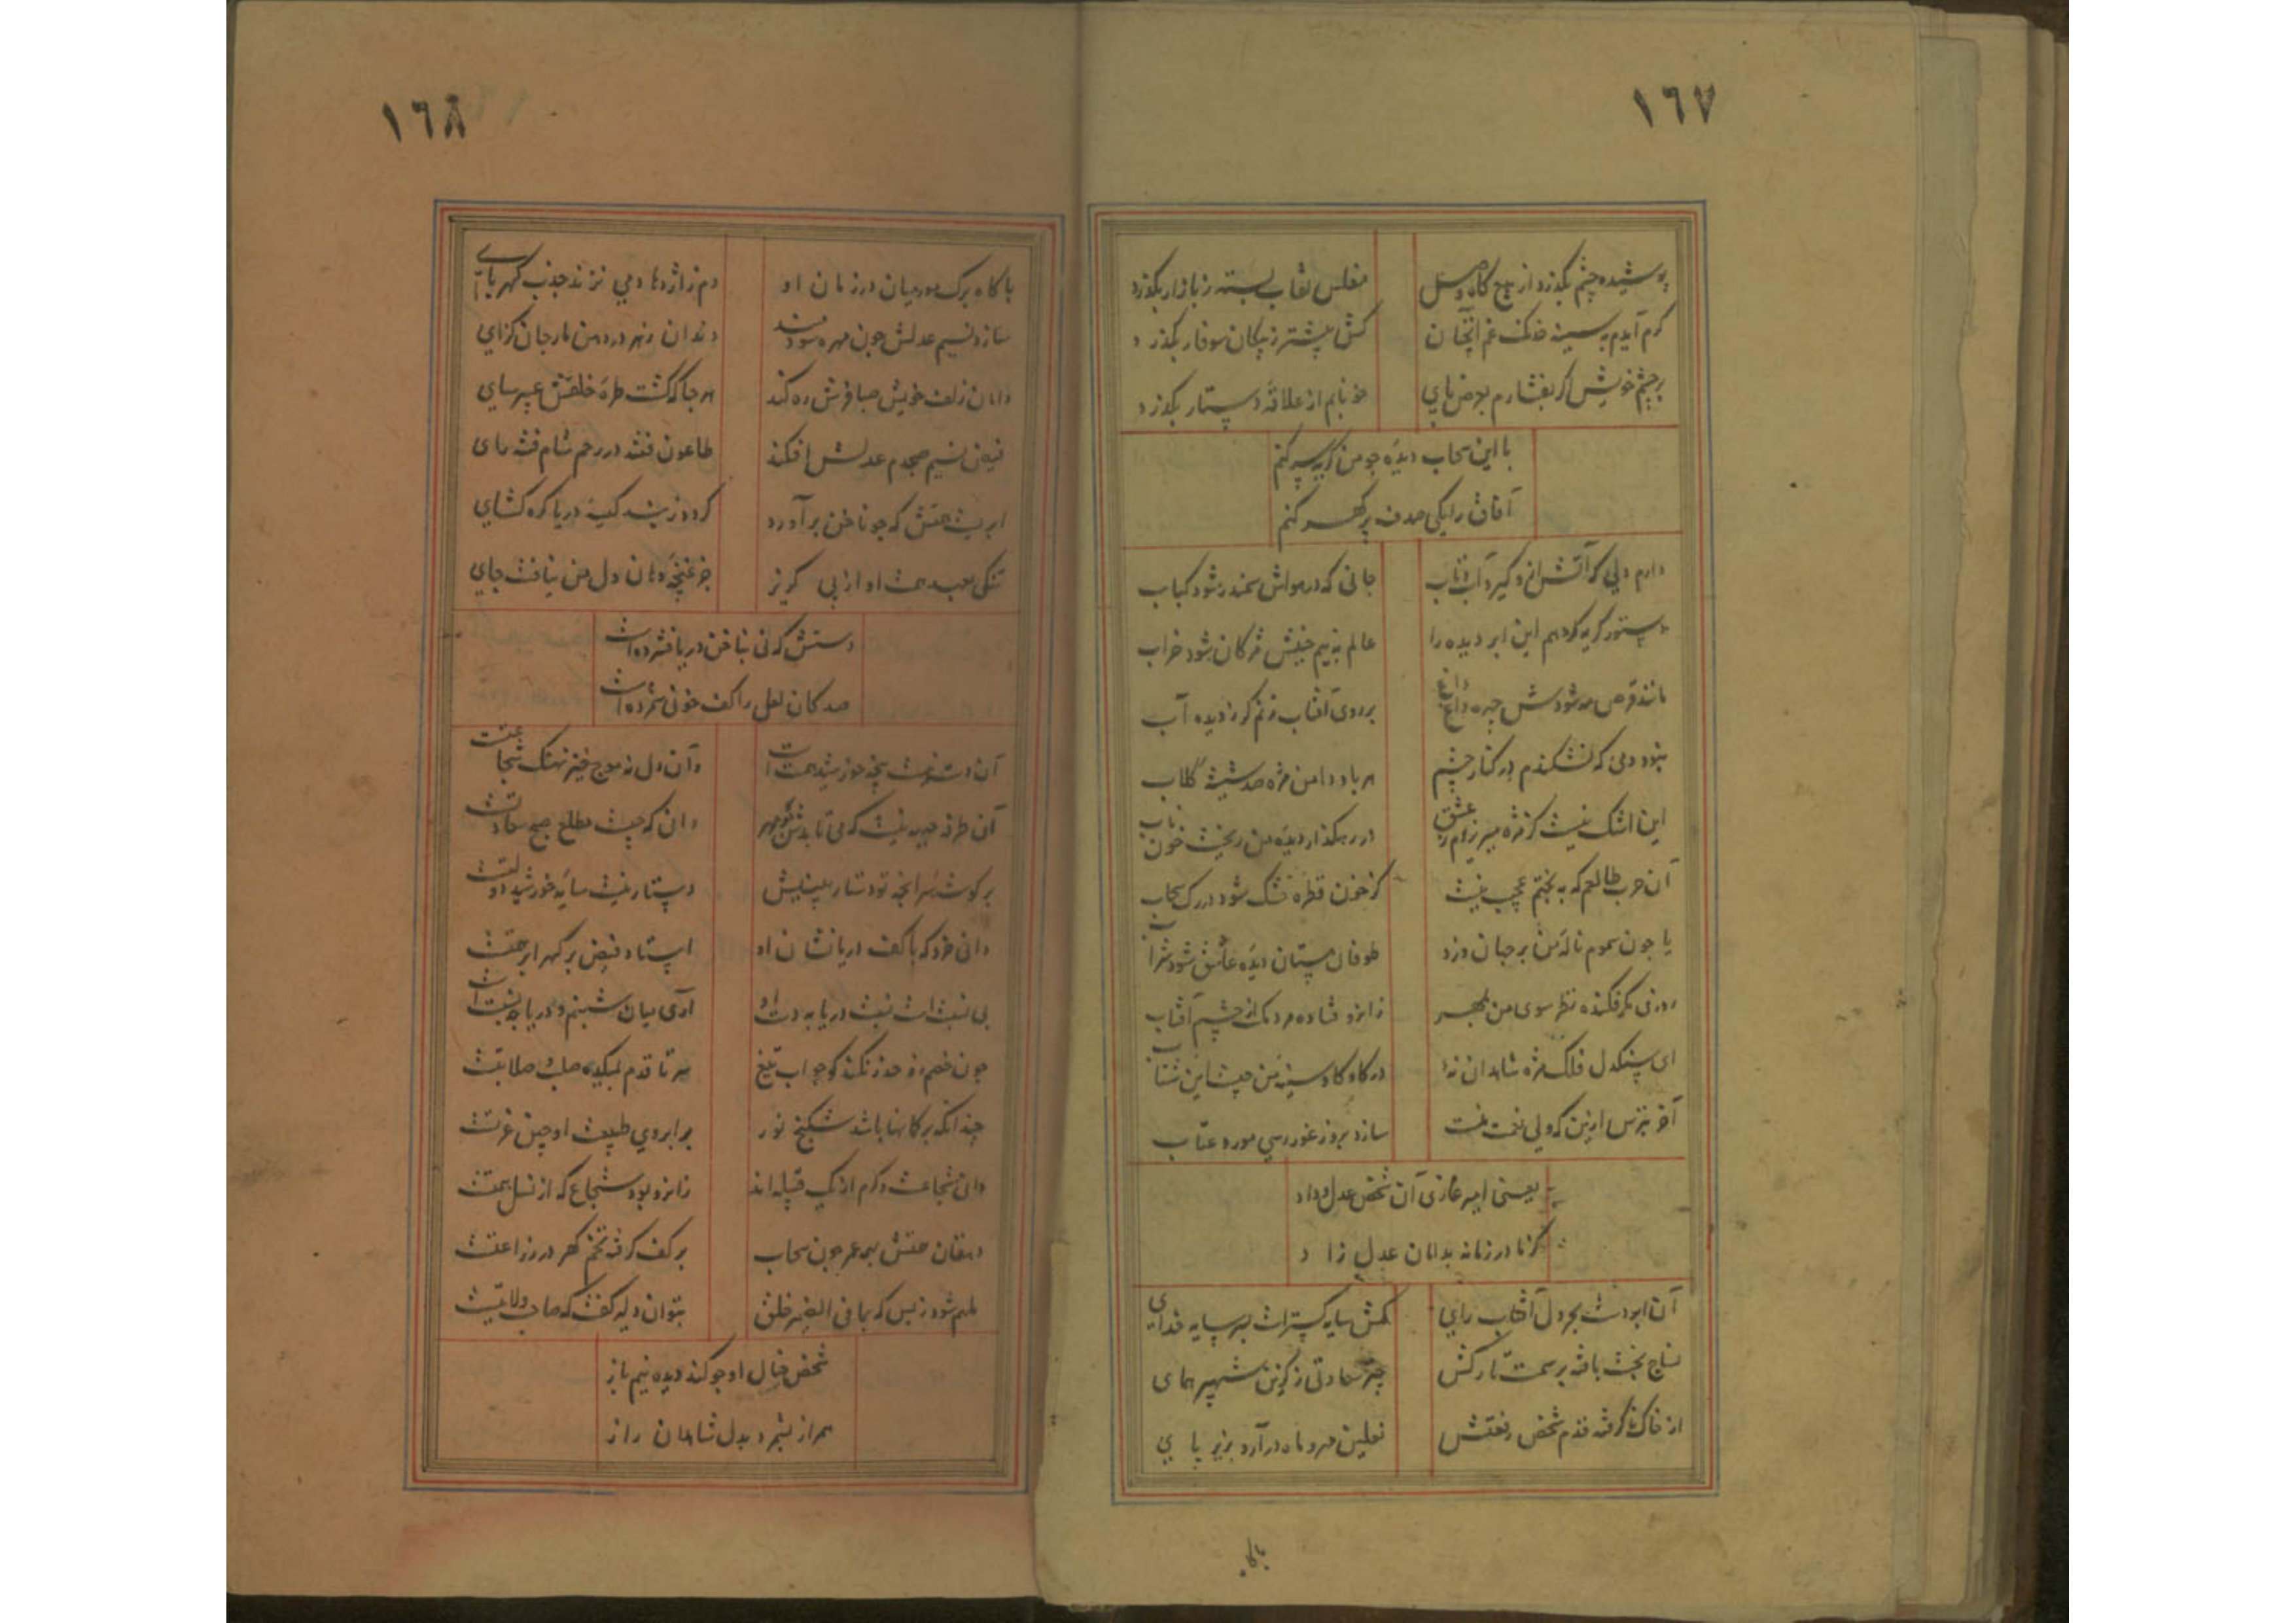 ١٦٧
پوشیده چشم بگذرد از هیچ کاه وصل
مفلس نقاب بسته ز بازار بگذرد
گرم آیدم به سینه خدنک غم آنچنان
کش پیشتر ز پیکان سوفار بگذرد
بر چشم خویش اگر بفشارم بعرض پای
خونابم از علاقهٔ دستار بگذرد
با این سحاب دیده چو من گریه سر کنم
آفاق را یکی صدف پر گهر کنم
دارم دلی که آتش ازو گیرد آب و تاب
جانی که در هواش سمندر شود کباب
دستور گریه گر دهم این ابر دیده را
عالم به نیم جنبش مژگان شود خراب
مانند قرص مه شودش چهره داغ داغ
بر روی آفتاب زنم گر ز دیده آب
نبود دمی که نشکندم در کنار چشم
هر باد دامن مژه صد شیشه گلاب
این اشک نیست کز مژه میریزدم عشق
در رهگذار دیده من ریخت خون ناب
آن طالعم که به بختم عجب نیست
کز خون قطره خشک شود در رک سحاب
یا چون سموم نالهٔ من بر جهان وزد
طوفان مستان دیده عاشق شود شراب
روزی مگر فکنده نظر سوی من بمهر
زانرو فتاده مردمک از چشم آفتاب
ای سنگدل فلک مژه شاهدان نهٔ
در کاو کاو سینه من چیست این شتاب
آخر بترس ازین که ولی نعمت منت
سازد بروز غوررسی مورد عتاب
یعنی امیر غازی آن شخص عدل و داد
کز نا در زمانه بدامان عدل زاد
آن ابر دست بحر دل آفتاب رای
کمش سایه گستر است بسر سایه خدای
نساج بخت بافته بر سمت تارکش
چتر سعادتی ز گزین شهپر همای
از خاک تا گرفته قدم شخص رفعتش
نعلین مهر و ماه در آرد بزیر پای
باکاه
١٦٨
با کاه برک مورمیان در زمان او
دم ز اژدها دمی نزند جذب کهربای
سازد نسیم عدلش چون مهره سودمند
دندان زهر در دهن مار جان گزای
دامان زلف خویش صبا فرش ره کند
هر جا که گشت طرهٔ خلقش عبیر سای
فیض نسیم صبحدم عدلش افکند
طاعون فتنه در رحم شام فتنه زای
ابریست همتش که چو ناخن برآورد
گردد ز بند کیسه دریا گره گشای
تنگی بعهد همت او از پی گریز
جز غنچه دهان دل من نیافت جای
دستش که نی بناخن دریا فشرده است
صد کان لعل را کف خونی شمرده است
آن دست نیست پنجه خورشید همت است
وآن دل نه موج خیز نهنک شجاعتست
آن طرفه جبهه نیست که می تابدش چو مهر
دانی که چیست مطلع صبح سعادتست
بر گوشه سر آنچه تو دستار بینیش
دستار نیست سایهٔ خورشید دولتست
دانی خرد که با کف دریا نشان او
استاد فیض بر گهر ابر همتست
بی نسبت است نسبت دریا به دست او
آری میان شبنم و دریا چه نسبت است
چون خصم زو حذر نکند کو چو آب تیغ
سر تا قدم لبکیده صاف صلابتست
چندانکه بر کمانها باشد شکنج نور
بر ابروی طبیعت او چین غرتست
دانی شجاعت و کرم از یک قبیله اند
زانرو بود شجاع که از نسل همتست
دهقان همتش همه عمر چون سحاب
بر کف گرفته تخم گهر در زراعتست
ملهم شود ز بس که بما فی الضمیر خلق
بتوان دلیر گفت که صاحب ولایتست
شخص خیال او چو کند دیده نیم باز
هم راز بشمرد بدل شاهدان راز